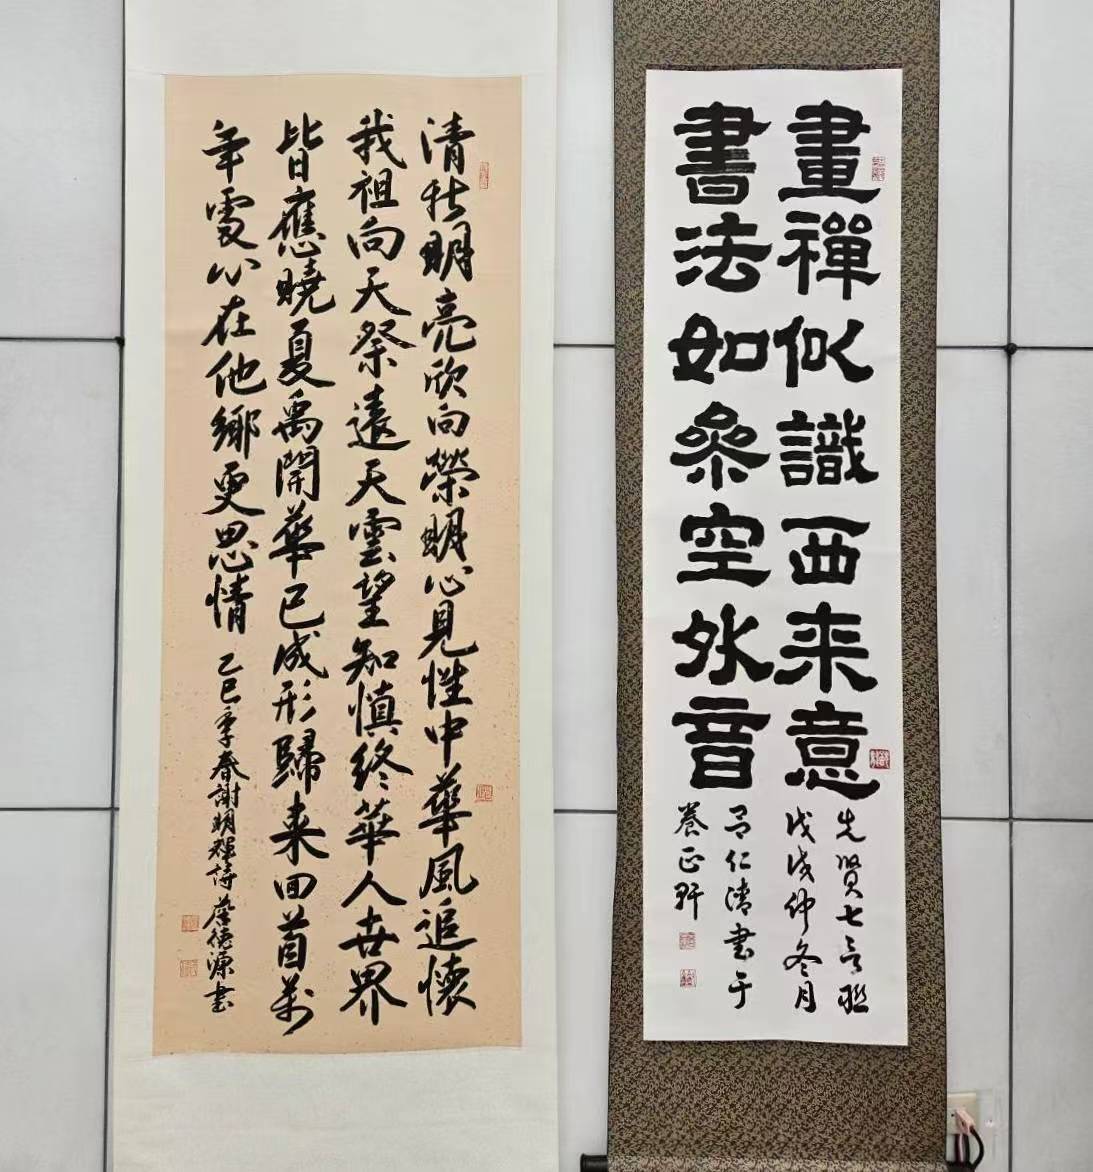 畫禪似識西来意
書法如參空外音
先賢七言聯
戊戌仲冬月
呂仁清書于
養正軒
清秋明亮欣向榮明心見性中華風追懷
我祖向天祭遠天雲望知慎終華人世界
皆應曉夏禹開華已成形歸来回首前
年雯心在他鄉更思情
乙巳季春謝明輝詩詹德源書